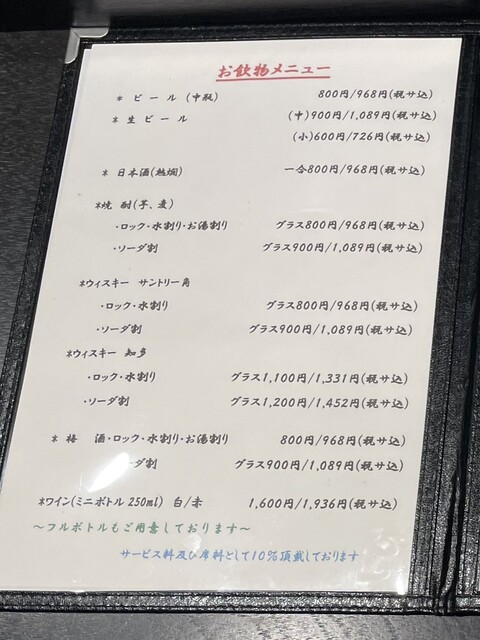 お飲物メニュー
* ビール (中瓶) 800円/968円(税サ込)
* 生ビール (中)900円/1,089円(税サ込)
(小)600円/726円(税サ込)
* 日本酒(熱燗) 一合800円/968円(税サ込)
*焼 酎(芋、麦)
・ロック・水割り・お湯割り グラス800円/968円(税サ込)
・ソーダ割 グラス900円/1,089円(税サ込)
*ウィスキー サントリー角
・ロック・水割り グラス800円/968円(税サ込)
・ソーダ割 グラス900円/1,089円(税サ込)
*ウィスキー 知多
・ロック・水割り グラス1,100円/1,331円(税サ込)
・ソーダ割 グラス1,200円/1,452円(税サ込)
* 梅 酒・ロック・水割り・お湯割り 800円/968円(税サ込)
ーダ割 グラス900円/1,089円(税サ込)
*ワイン(ミニボトル 250ml) 白/赤 1,600円/1,936円(税サ込)
〜フルボトルもご用意しております〜
サービス料及び席料として10%頂戴しております